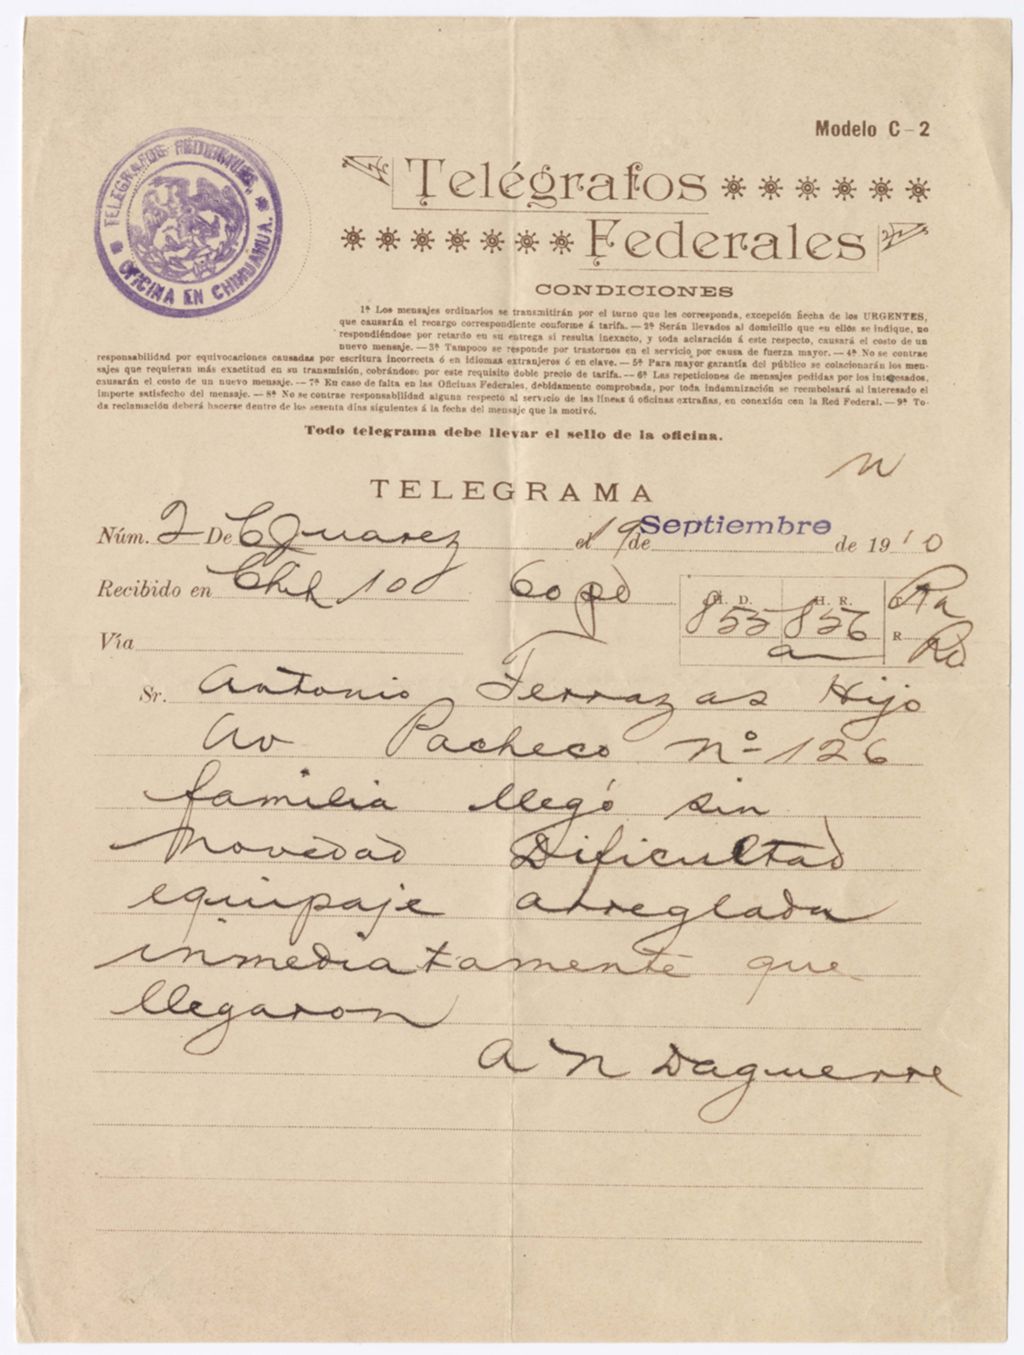 Modelo C-2
TELEGRAFOS FEDERALES.
OFICINA EN CHIHUAHUA.
Telégrafos
Federales
CONDICIONES
1ª Los mensajes ordinarios se transmitirán por el turno que les corresponda, excepción hecha de los URGENTES,
que causarán el recargo correspondiente conforme á tarifa. — 2ª Serán llevados al domicilio que en ellos se indique, no
respondiéndose por retardo en su entrega si resulta inexacto, y toda aclaración á este respecto, causará el costo de un
nuevo mensaje. — 3ª Tampoco se responde por trastornos en el servicio por causa de fuerza mayor. — 4ª No se contrae
responsabilidad por equivocaciones causadas por escritura incorrecta ó en idiomas extranjeros ó en clave. — 5ª Para mayor garantía del público se colacionarán los men-
sajes que requieran más exactitud en su transmisión, cobrándose por este requisito doble precio de tarifa. — 6ª Las repeticiones de mensajes pedidas por los interesados,
causarán el costo de un nuevo mensaje. — 7ª En caso de falta en las Oficinas Federales, debidamente comprobada, por toda indemnización se reembolsará al interesado el
importe satisfecho del mensaje. — 8ª No se contrae responsabilidad alguna respecto al servicio de las líneas ú oficinas extrañas, en conexión con la Red Federal. — 9ª To-
da reclamación deberá hacerse dentro de los sesenta días siguientes á la fecha del mensaje que la motivó.
Todo telegrama debe llevar el sello de la oficina.
n
TELEGRAMA
Núm. 2 De C Juarez el 19 de Septiembre de 1910
Recibido en Chih 10 60 pd
H. D. H. R.
855 856
a
R
Vía
Sr. Antonio Terrazas Hijo
Av Pacheco nº 126
familia llegó sin
novedad Dificultad
equipaje arreglada
inmediatamente que
llegaron
A N Daguerre